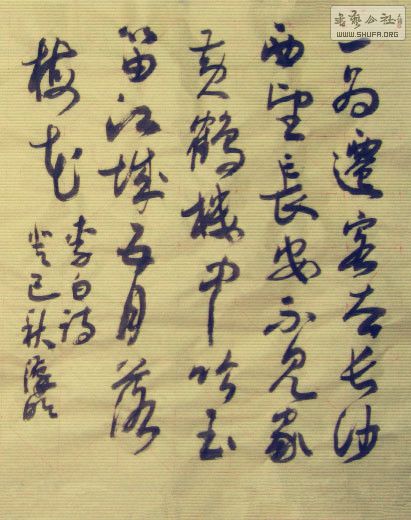 一为遷客去长沙
西望長安不见家
黄鶴楼中吹玉
笛江城五月落
梅花
李白詩
癸巳秋
書藝公社
WWW.SHUFA.ORG